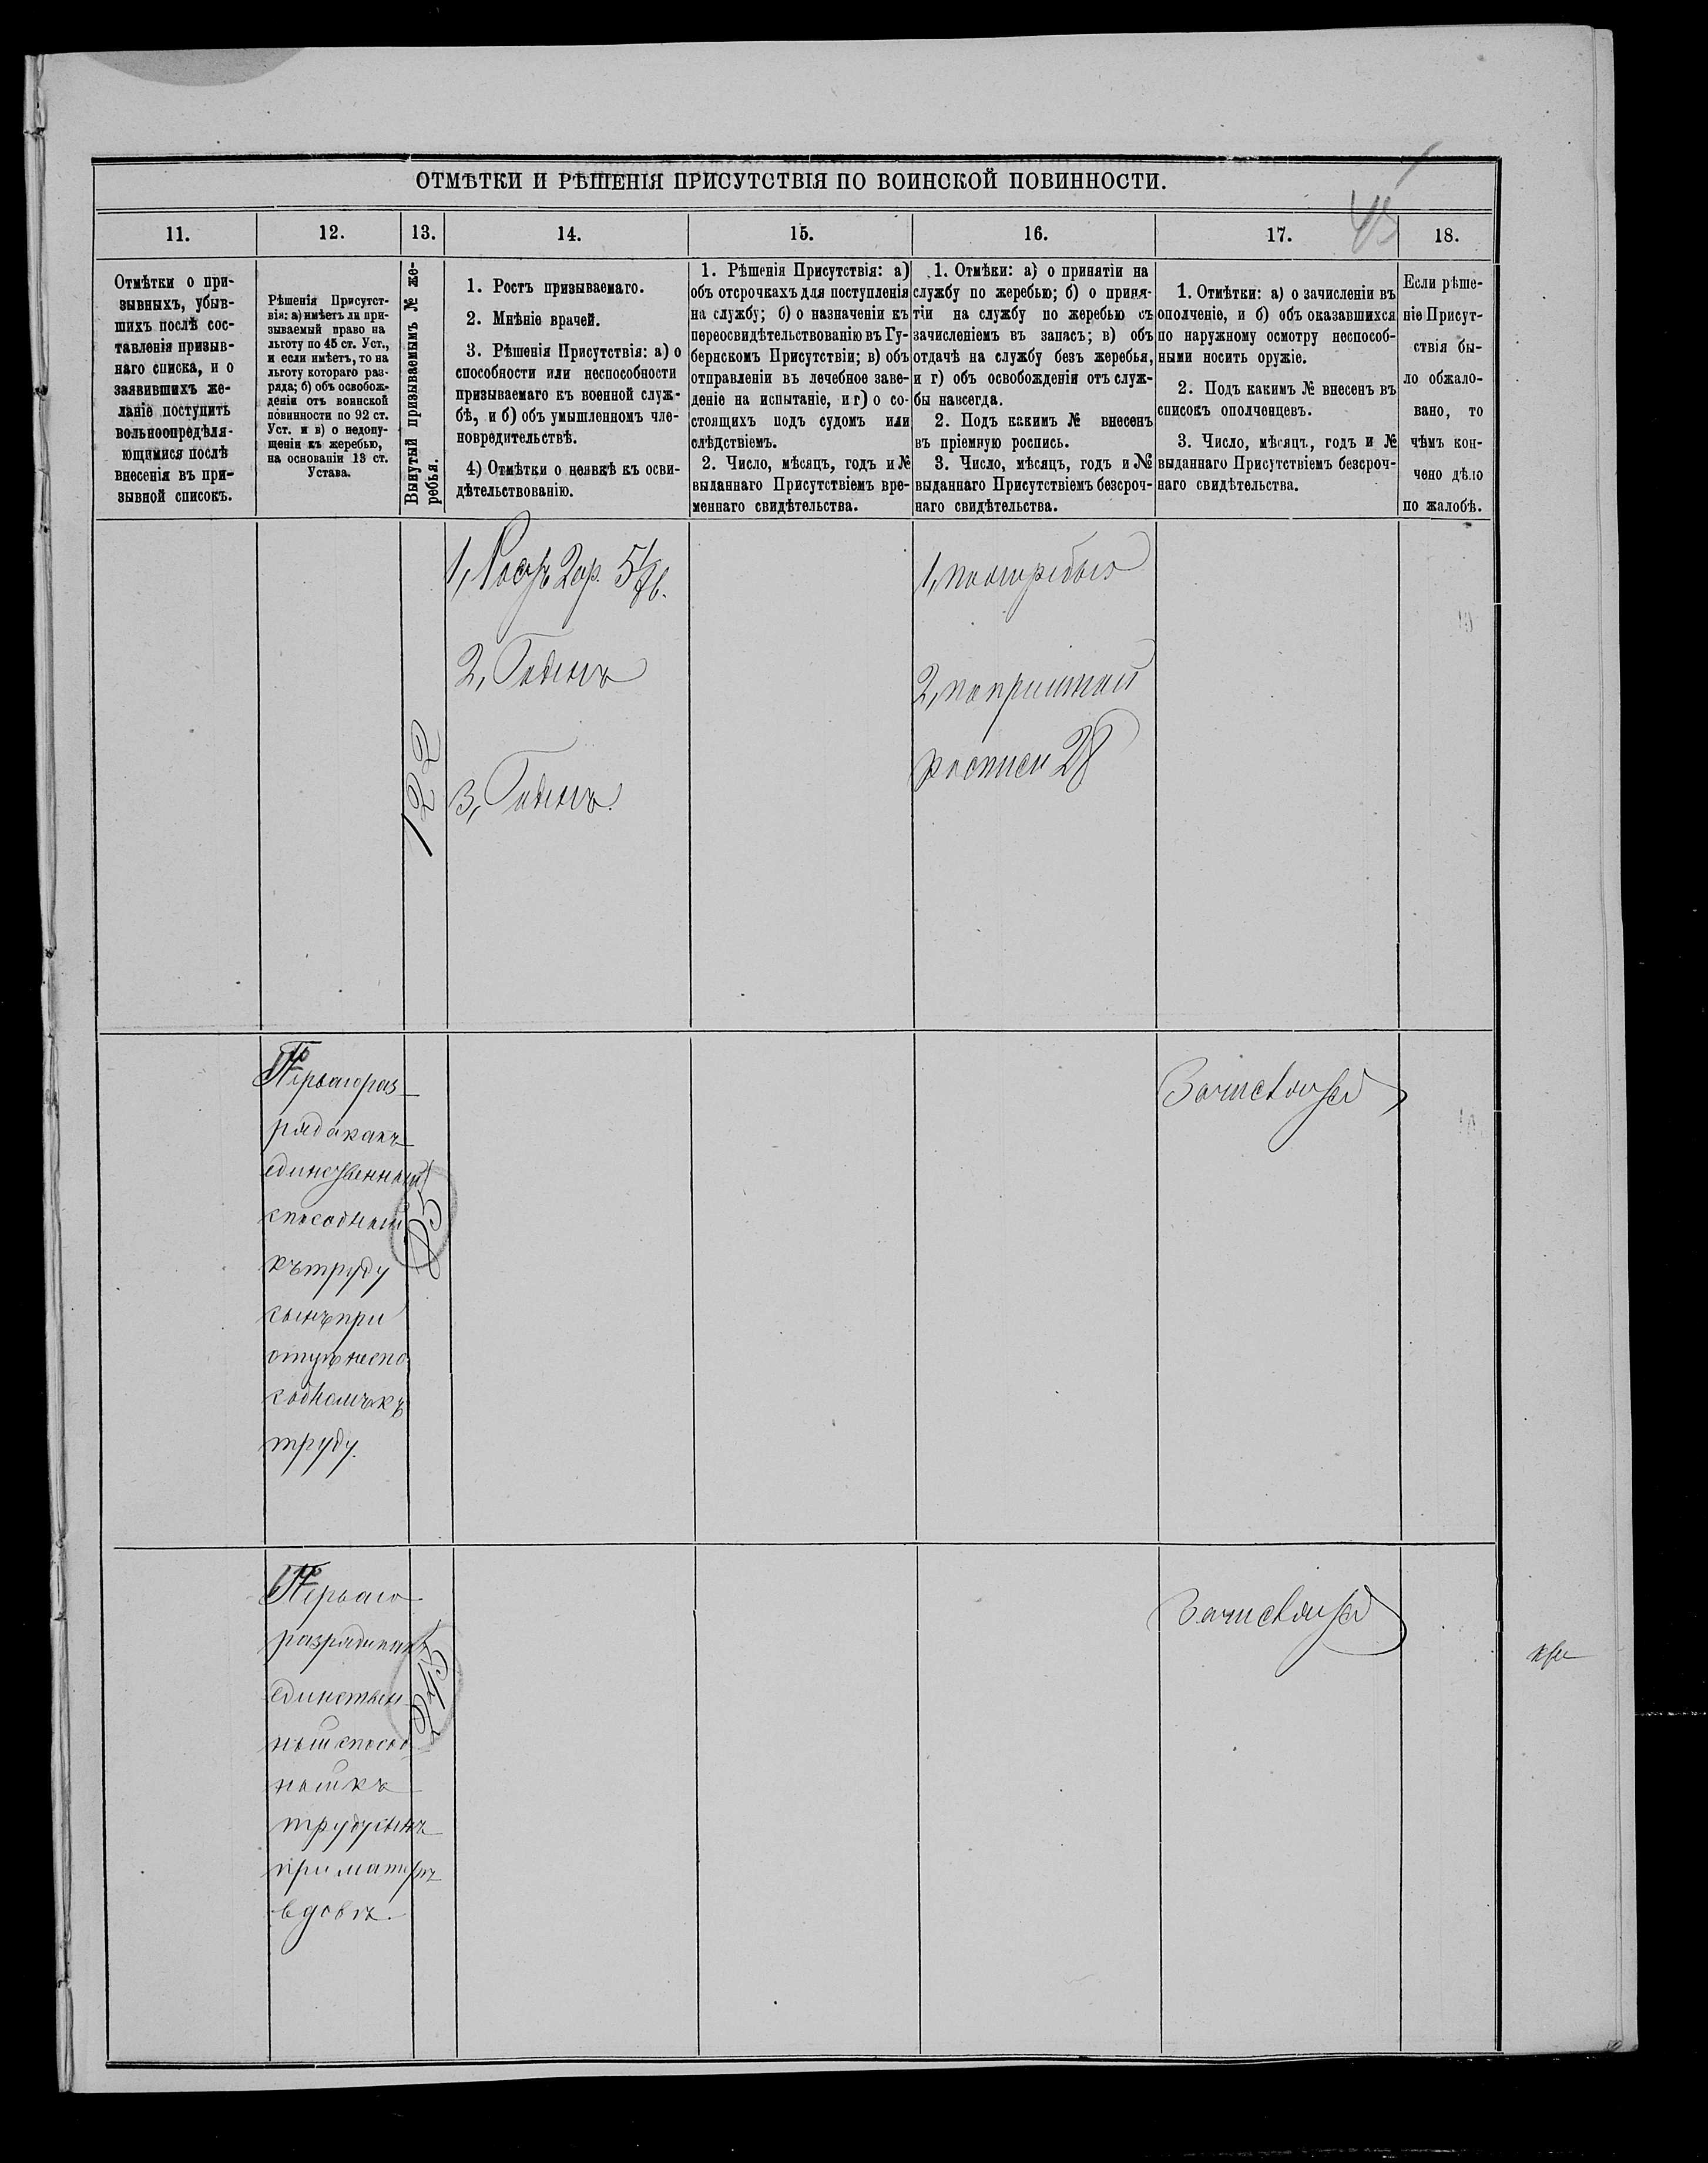 ОТМѢТКИ И РѢШЕНІЯ ПРИСУТСТВІЯ ПО ВОИНСКОЙ ПОВИННОСТИ.
11.
12.
13.
14.
15.
16.
17.
18.
Отмѣтки о при-
зывныхъ, убыв-
шихъ послѣ сос-
тавленія призыв-
наго списка, и о
заявившихъ же-
ланіе поступить
вольноопредѣля-
ющимися послѣ
внесенія въ при-
зывной списокъ.
Рѣшенія Присутст-
вія: а) имѣетъ ли при-
зываемый право на
льготу по 45 ст. Уст.,
и если имѣетъ, то на
льготу котораго раз-
ряда; б) объ освобож-
деніи отъ воинской
повинности по 92 ст.
Уст. и в) о недопу-
щеніи къ жеребью,
на основаніи 13 ст.
Устава.
Вынутый призываемымъ № же-
ребья.
1. Ростъ призываемаго.
2. Мнѣніе врачей.
3. Рѣшенія Присутствія: а) о
способности или неспособности
призываемаго къ военной служ-
бѣ, и б) объ умышленномъ чле-
новредительствѣ.
4) Отмѣтки о неявкѣ къ осви-
дѣтельствованію.
1. Рѣшенія Присутствія: а)
объ отсрочкахъ для поступленія
на службу; б) о назначеніи къ
переосвидѣтельствованію въ Гу-
бернскомъ Присутствіи; в) объ
отправленіи въ лечебное заве-
деніе на испытаніе, и г) о со-
стоящихъ подъ судомъ или
слѣдствіемъ.
2. Число, мѣсяцъ, годъ и №
выданнаго Присутствіемъ вре-
меннаго свидѣтельства.
1. Отмѣки: а) о принятіи на
службу по жеребью; б) о приня-
тіи на службу по жеребью съ
зачисленіемъ въ запасъ; в) объ
отдачѣ на службу безъ жеребья,
и г) объ освобожденіи отъ служ-
бы навсегда.
2. Подъ какимъ № внесенъ
въ пріемную роспись.
3. Число, мѣсяцъ, годъ и №
выданнаго Присутствіемъ безсроч-
наго свидѣтельства.
1. Отмѣтки: а) о зачисленіи въ
ополченіе, и б) объ оказавшихся
по наружному осмотру неспособ-
ными носить оружіе.
2. Подъ какимъ № внесенъ въ
списокъ ополченцевъ.
3. Число, мѣсяцъ, годъ и №
выданнаго Присутствіемъ безсроч-
наго свидѣтельства.
Если рѣше-
ніе Присут-
ствія бы-
ло обжало-
вано, то
чѣмъ кон-
чено дѣло
по жалобѣ.
122
1, Ростъ 2 ар.
2, Годенъ
3, Годенъ.
1, по жеребью
2, по приемной
росписи 28
Перваго раз-
ряда какъ
единственный
способный
къ труду
сынъ при
отцѣ неспо-
собномъ къ
труду.
85
Зачисляется
Перваго
разряда какъ
единствен-
ный способ-
ный къ
труду сынъ
при матери
вдовѣ.
245
Зачисляется